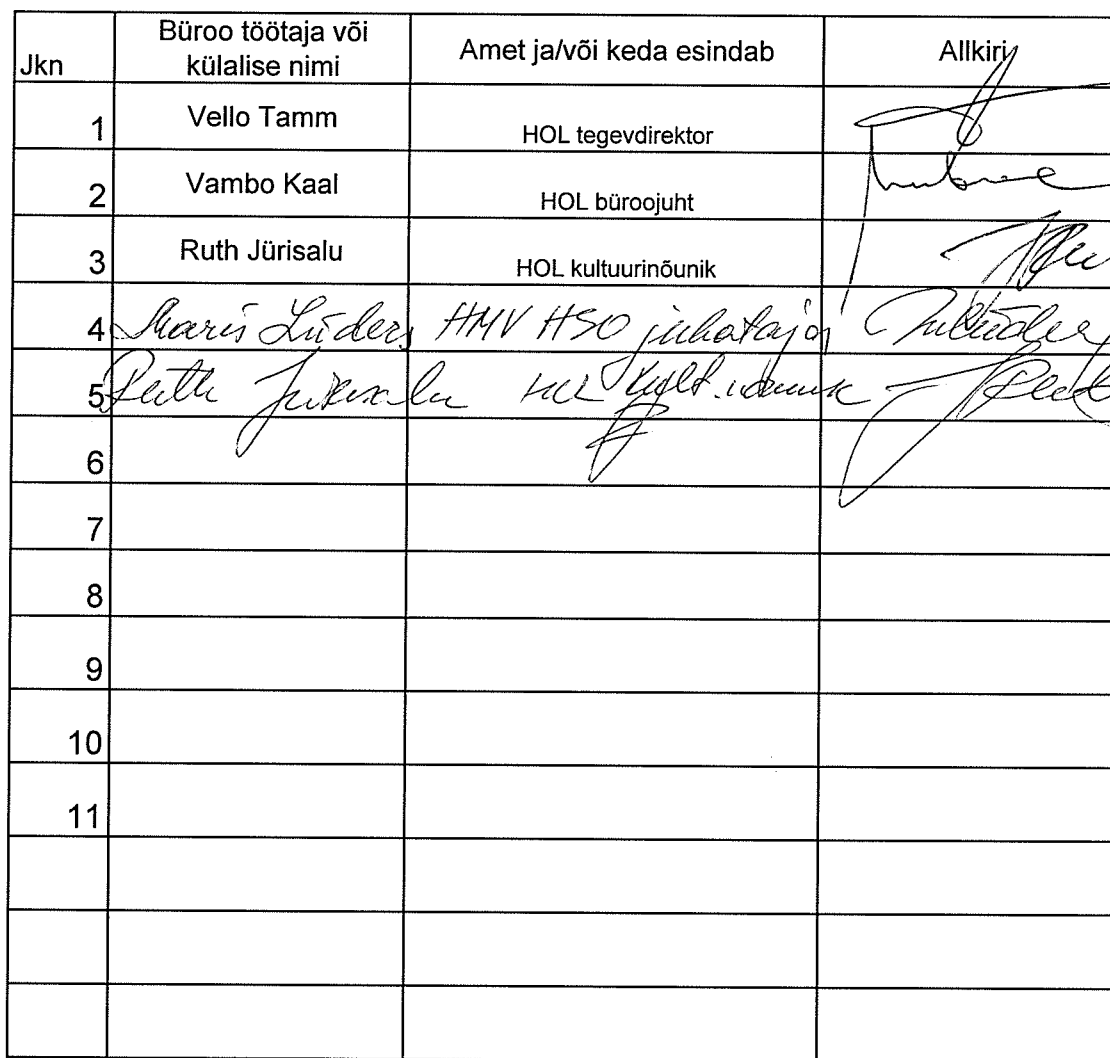 Jkn Büroo töötaja või külalise nimi Amet ja/või keda esindab Allkiri
1 Vello Tamm HOL tegevdirektor
2 Vambo Kaal HOL büroojuht
3 Ruth Jürisalu HOL kultuurinõunik
4 Maris Lüders HMV HSO juhataja
5 Ruth Jürisalu HOL kult. nõunik
6
7
8
9
10
11